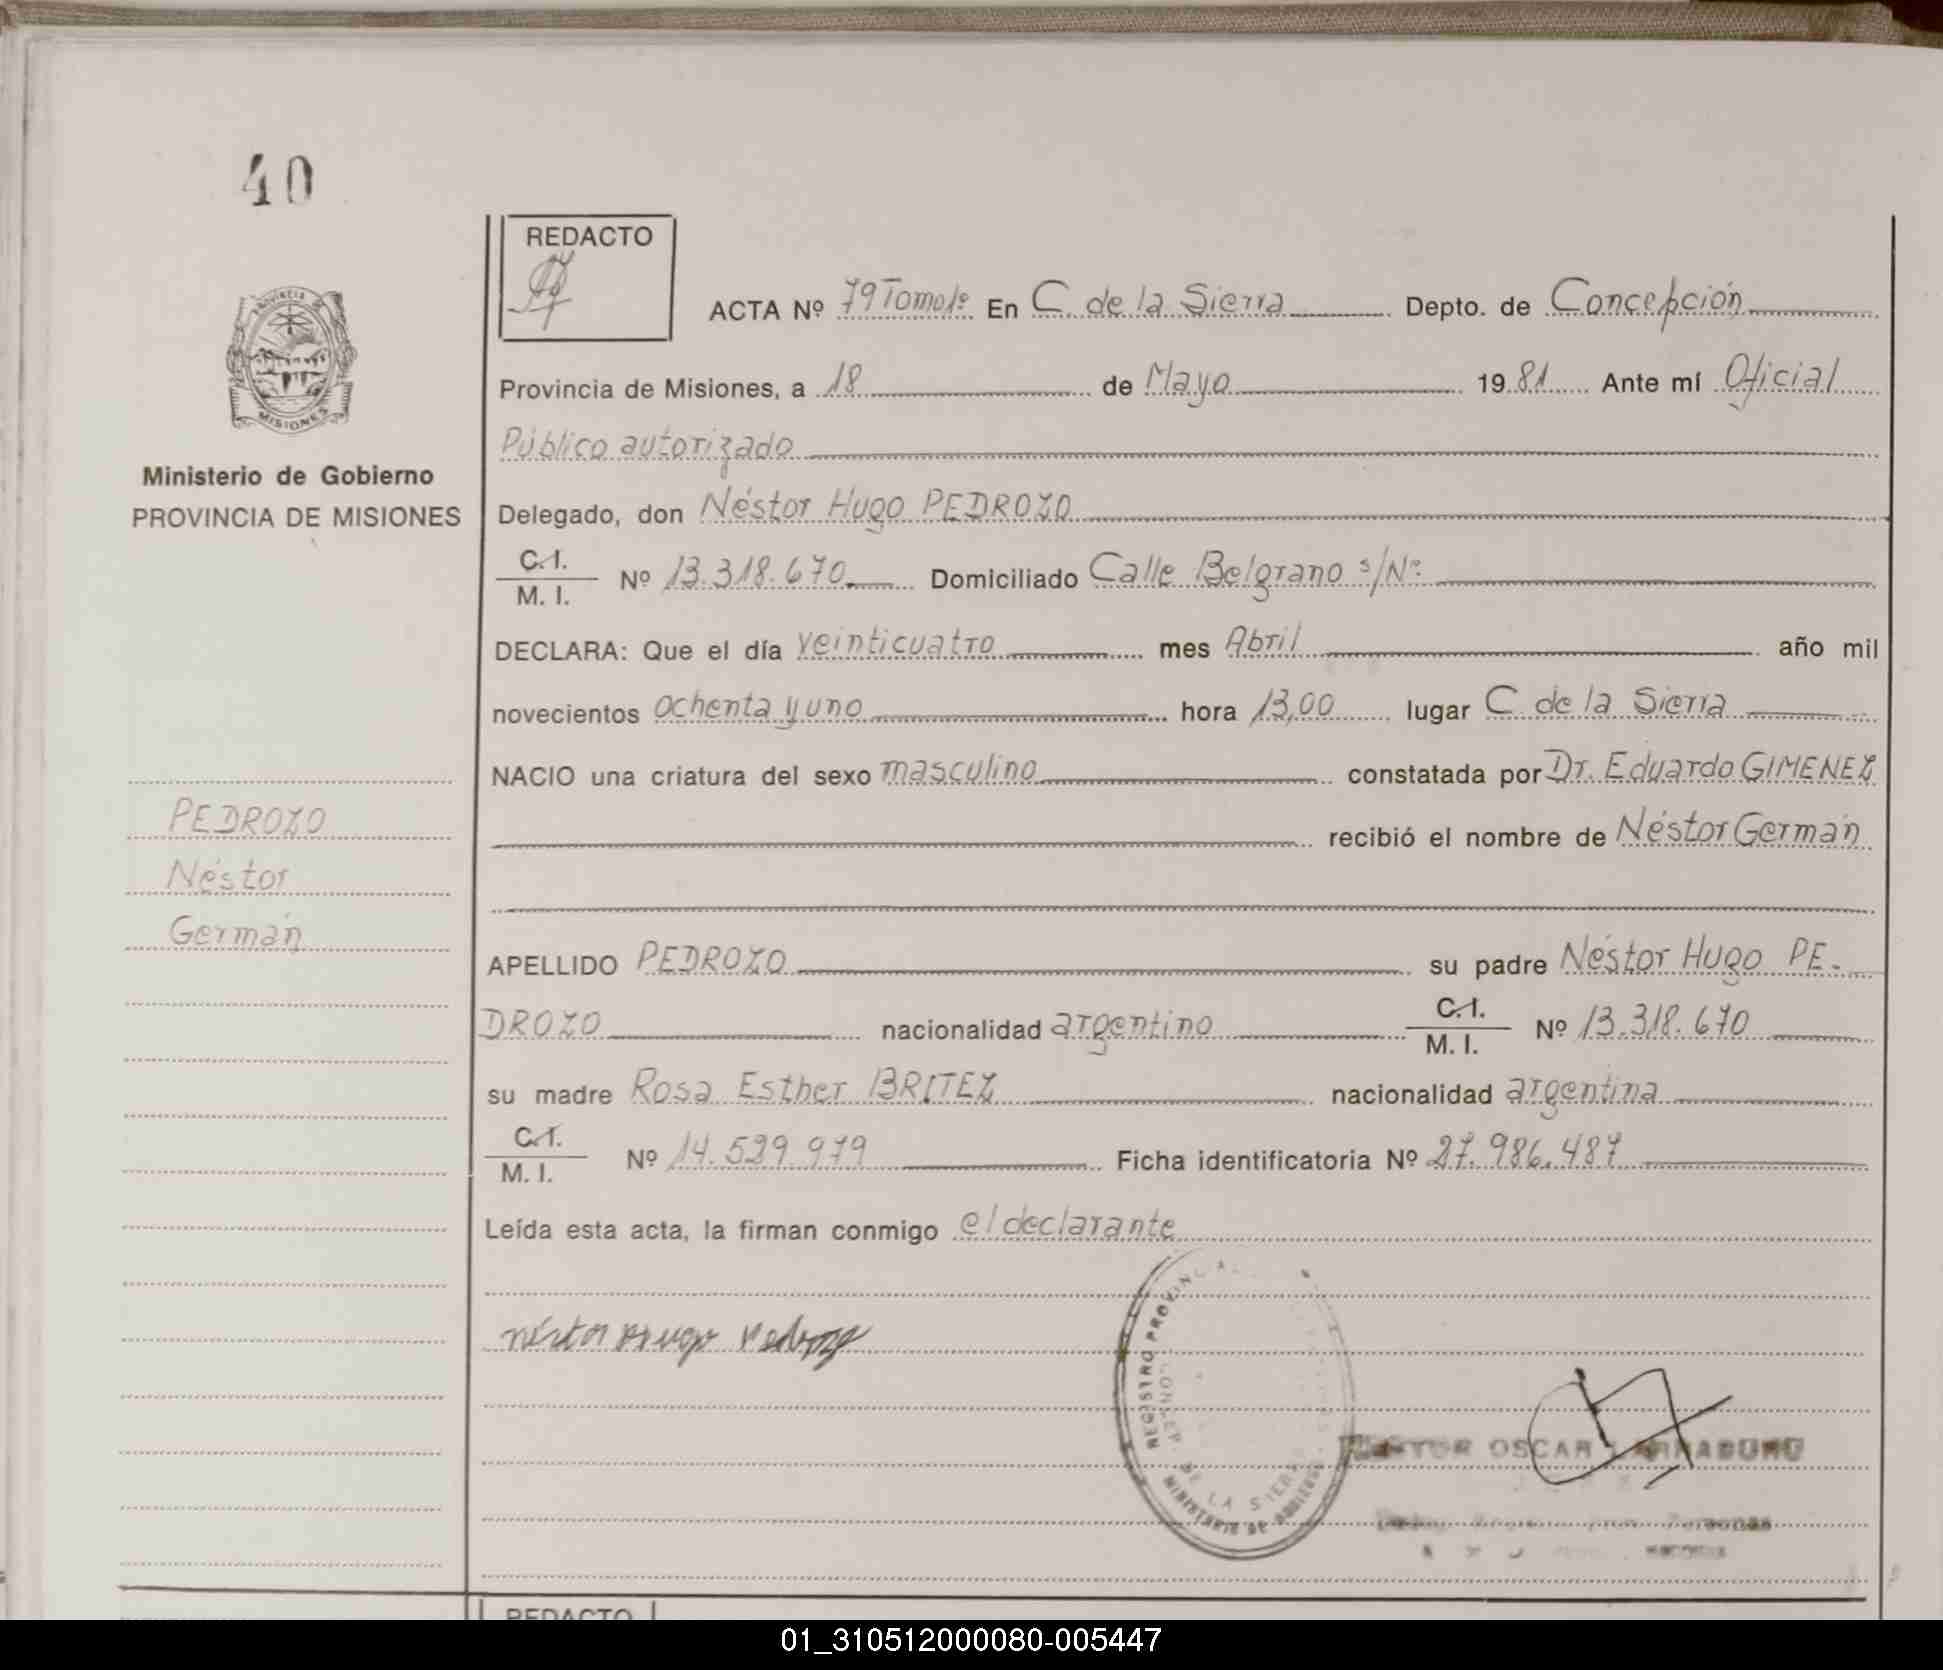 40
REDACTO
ACTA Nº 79 Tomo 1º En C. de la Sierra Depto. de Concepción
Provincia de Misiones, a 18 de Mayo 1981 Ante mí Oficial
Público autorizado
PROVINCIA DE
MISIONES
Ministerio de Gobierno
PROVINCIA DE MISIONES
Delegado, don Néstor Hugo PEDROZO
C.I.
M. I.
Nº 13.318.670 Domiciliado Calle Belgrano s/Nº
DECLARA: Que el día veinticuatro mes Abril año mil
novecientos ochenta y uno hora 13,00 lugar C de la Sierra
NACIO una criatura del sexo masculino constatada por Dr. Eduardo GIMENEZ
recibió el nombre de Néstor Germán
PEDROZO
Néstor
Germán
APELLIDO PEDROZO su padre Néstor Hugo PE-
DROZO nacionalidad argentino C.I.
M. I.
Nº 13.318.670
su madre Rosa Esther BRITEZ nacionalidad argentina
C.I.
M. I.
Nº 14.529.979 Ficha identificatoria Nº 27.986.487
Leída esta acta, la firman conmigo el declarante
Néstor Hugo Pedrozo
REGISTRO PROVINCIAL
DE LA SIERRA
MINISTERIO DE GOBIERNO
OSCAR
REDACTO
01_310512000080-005447